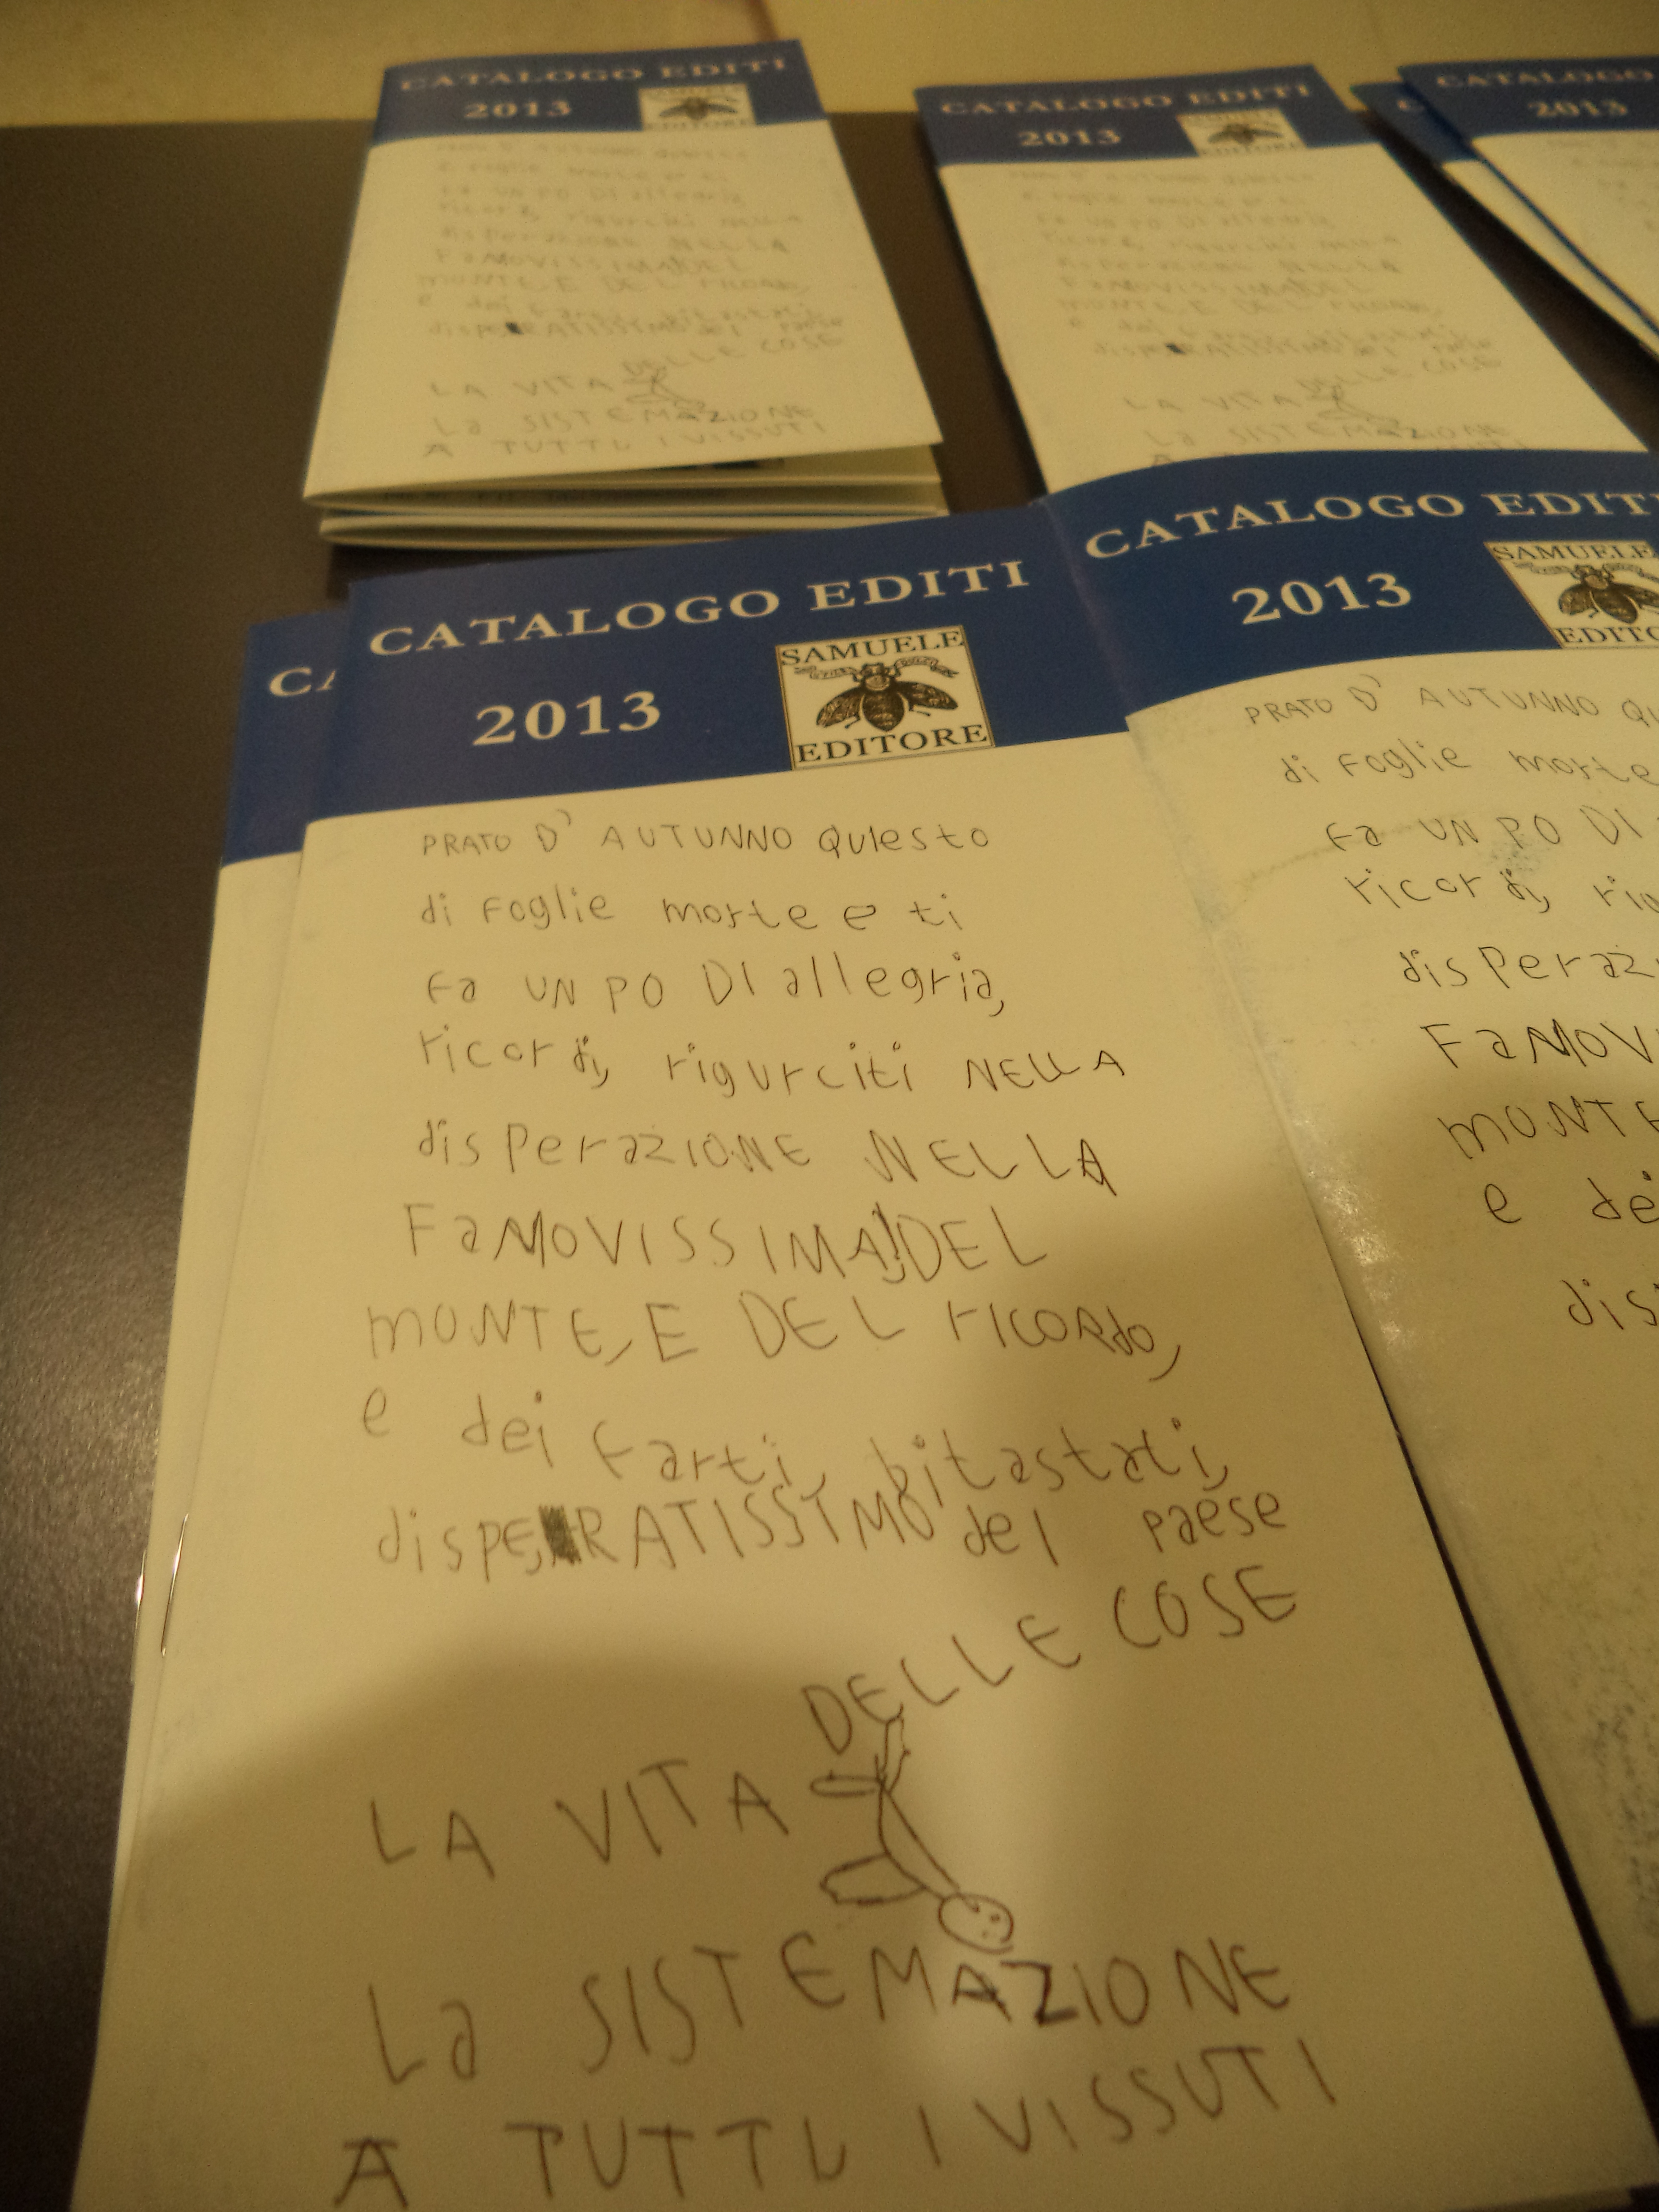 CATALOGO EDITI
2013
SAMUELE
EDITORE
CATALOGO EDITI
2013
EDITORE
CATALOGO
2013
LA VITA DELLE COSE
La SISTEMAZIONE
A TUTTI I VISSUTI
CATALOGO EDITI
2013
SAMUELE
EDITORE
PRATO D' AUTUNNO Questo
di Foglie morte e ti
Fa UN PO DI allegria,
ricordi, rigurciti NELLA
disPeraZIONE NELLA
FaMOVISSIMA DEL
MONTE, E DEL RICORdo,
e dei Farti, bitastati,
disPERATISSIMO del Paese
DELLE COSE
LA VITA
La SISTEMAZIONE
A TUTTI I VISSUTI
CATALOGO EDITI
2013
SAMUELE
EDITO
PRATO D' AUTUNNO QU
di Foglie morte
Fa UN PO DI
ricordi, rig
disPeraz
FaMOV
MONTE
e dei
dis